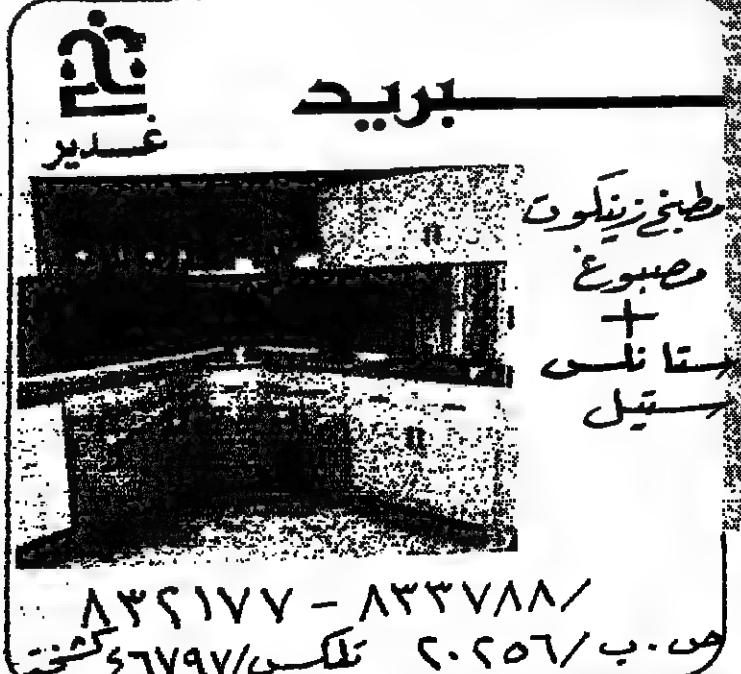 بريد
غدير
مطبخ زينكوت
مصبوغ
+
ستانلس
ستيل
٨٣٢١٧٧ - ٨٣٣٧٨٨/
ص.ب/٢٠٢٥٦ تلكس/٤٦٧٩٧ كشخة